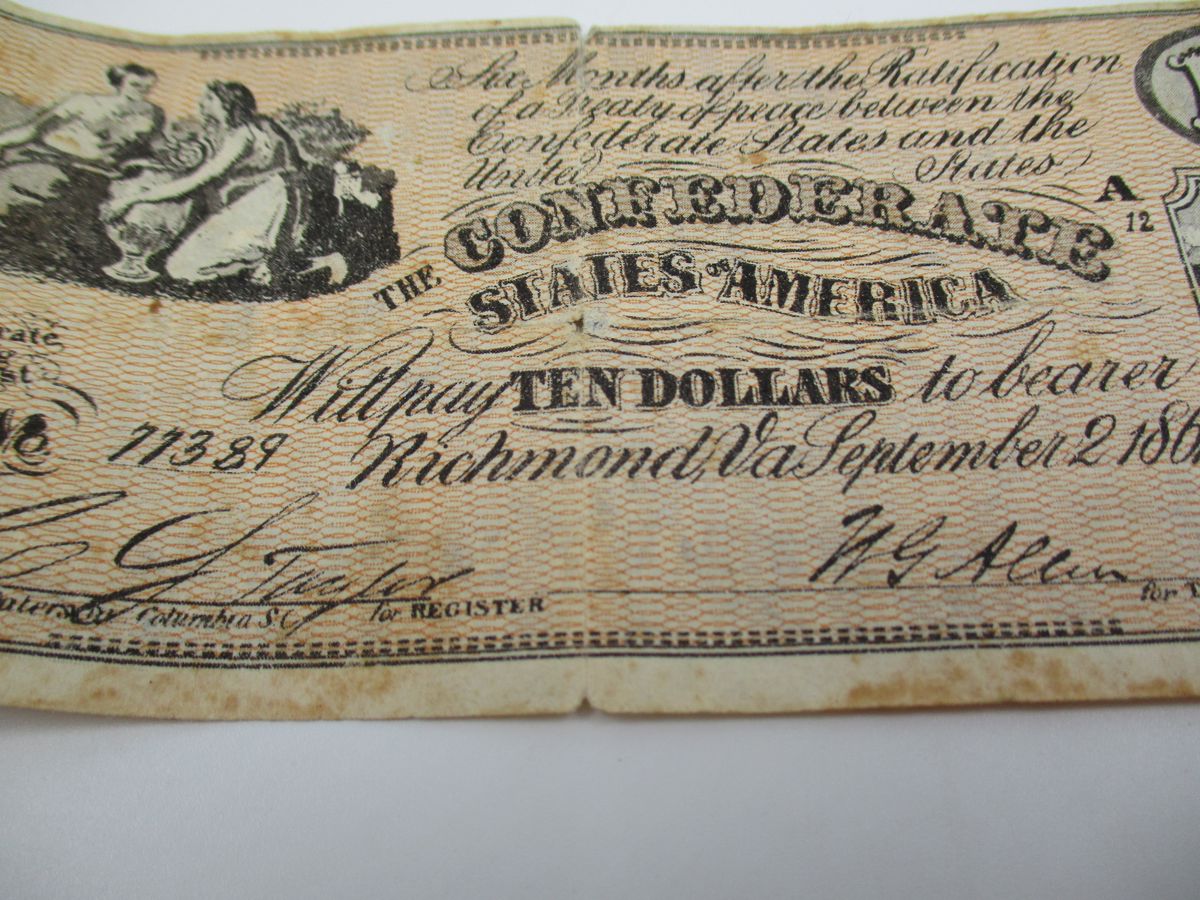 Six Months after the Ratification
of a Treaty of peace between the
Confederate States and the
United States
A
12
THE CONFEDERATE
STATES OF AMERICA
Will pay TEN DOLLARS to bearer
No. 77389
Richmond, Va September 2 186
Taylor
W G Allen
Columbia S.C.
for REGISTER
for